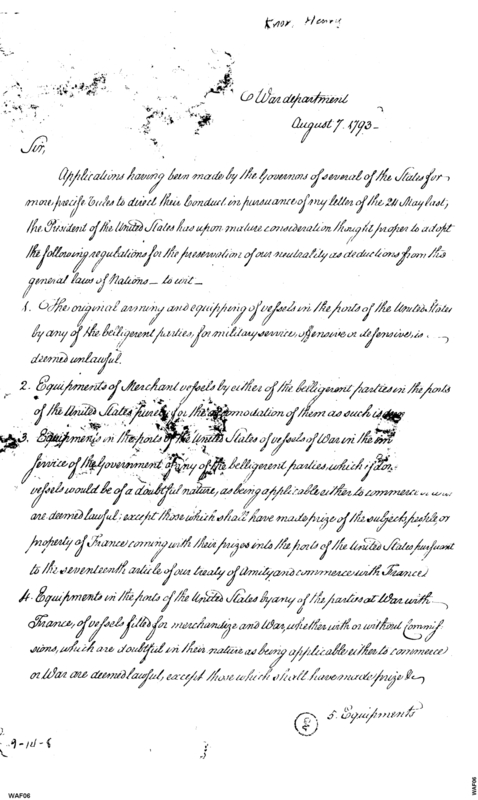 Knox, Henry
War department
August 7. 1793_
Sir,
Applications having been made by the Governors of several of the States for
more precise rules to direct their Conduct in pursuance of my letter of the 24 May last,
the President of the United States has upon mature consideration thought proper to adopt
the following regulations for the preservation of our neutrality as deductions from the
general laws of Nations _ to wit _
1. The original arming and equipping of vessels in the ports of the United States
by any of the belligerent parties, for military service, offensive or defensive, is
deemed unlawful.
2. Equipments of Merchant vessels by either of the belligerent parties in the ports
of the United States purely for the accomodation of them as such is
3. Equipments in the ports of the United States of vessels of War in the
Service of the Government of any of the belligerent parties, which if
vessels would be of a doubtful nature, as being applicable either to commerce
are deemed lawful; except those which shall have made prize of the subject, people, or
property of France coming with their prizes into the ports of the United States pursuant
to the seventeenth article of our treaty of Amity and commerce with France
4. Equipments in the ports of the United States by any of the parties at War with
France, of vessels fitted for merchandize and War, whether with or without Commis
sions, which are doubtful in their nature as being applicable either to commerce
or War are deemed lawful, except those which shall have made prize &c
5. Equipments
WAF06
WAF06